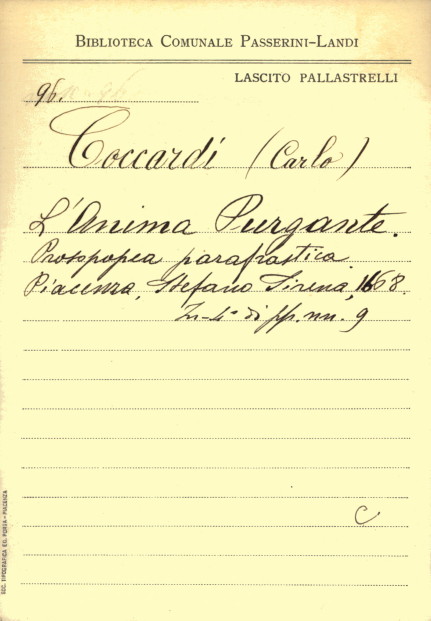 BIBLIOTECA COMUNALE PASSERINI-LANDI
LASCITO PALLASTRELLI
96.
Coccardi (Carlo)
L'Anima Purgante.
Prosopopea parafrastica.
Piacenza, Stefano Sirena, 1668.
In-4° di pp. nn. 9
C
SOC. TIPOGRAFICA ED. PORTA - PIACENZA